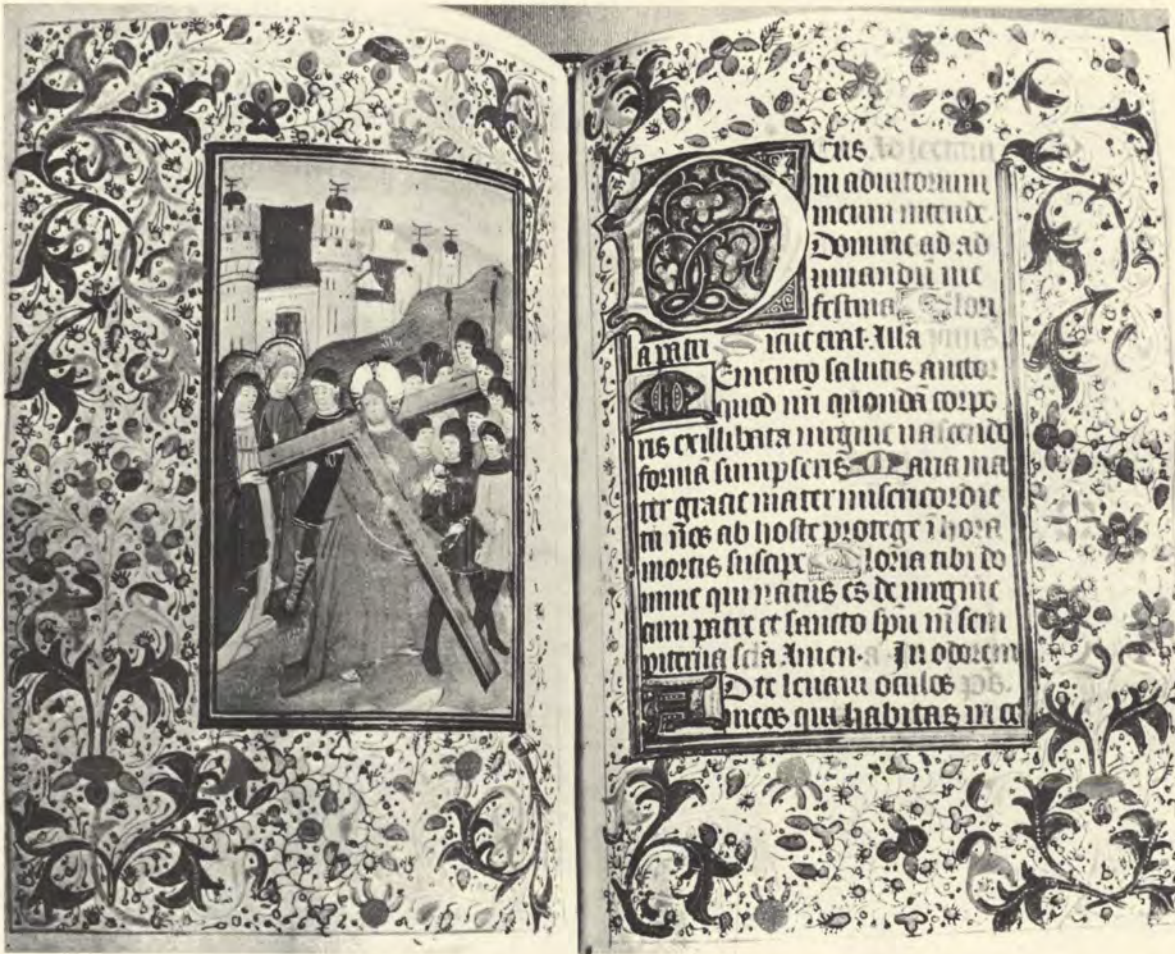 Deus Ad sextam
in adiutorium
meum intende
Domine ad ad
iuuandū me
festina Glori
a patri Sicut erat. Alla
Memento salutis auctor
quod nr̄i quondā corpo
ris ex illibata uirgine nascendo
formā sumpseris Maria ma
ter gracie mater misericordie
tu nos ab hoste protege ī hora
mortis suscipe Gloria tibi do
mine qui natus es de uirgine
cum patre et sancto spū in sem
piterna sc̄la Amen. a In odorem
AD te leuaui oculos ps.
meos qui habitas in ce